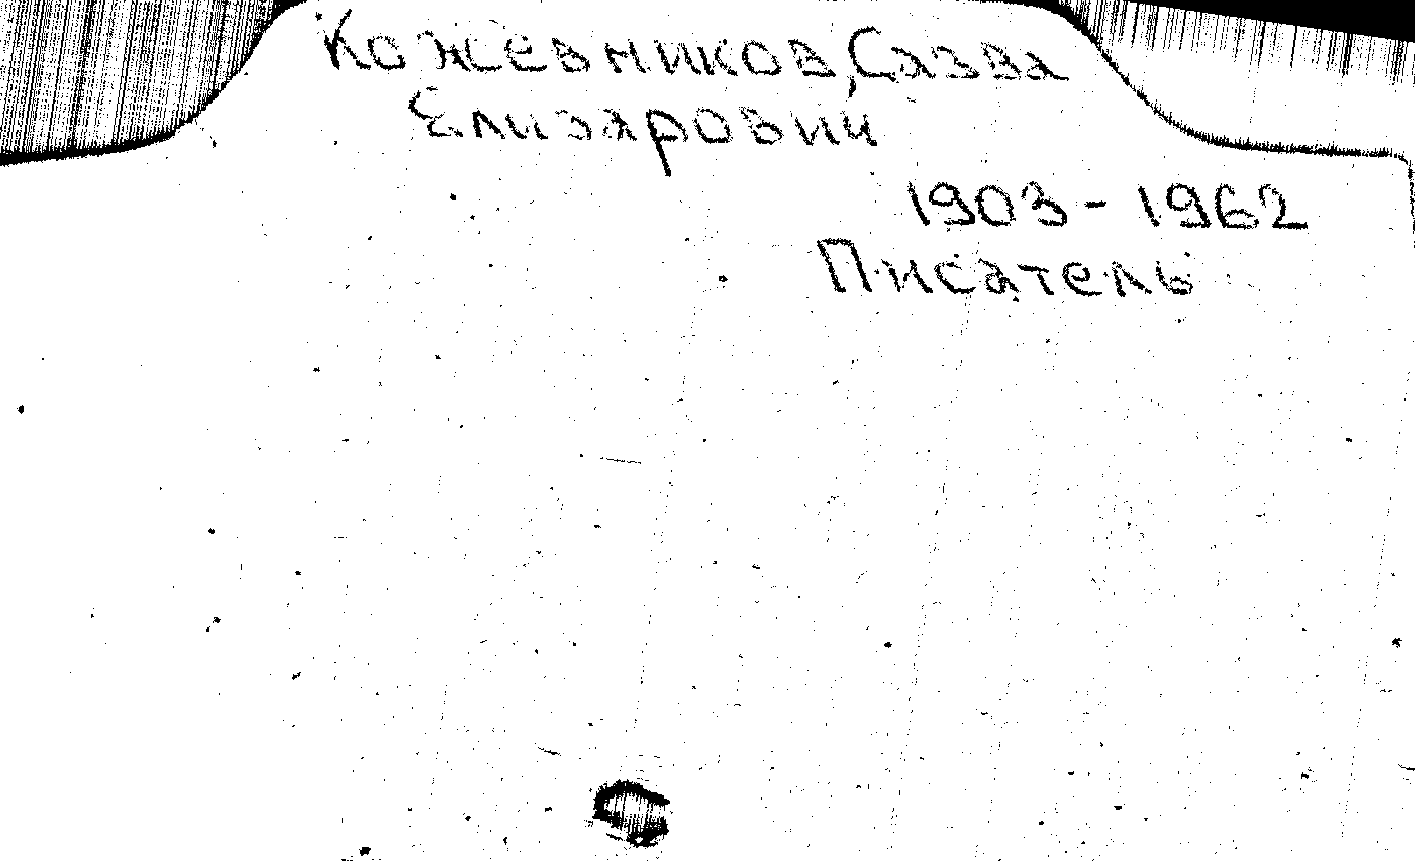 Кожевников, Савва
Елизарович
1903 - 1962
Писатель